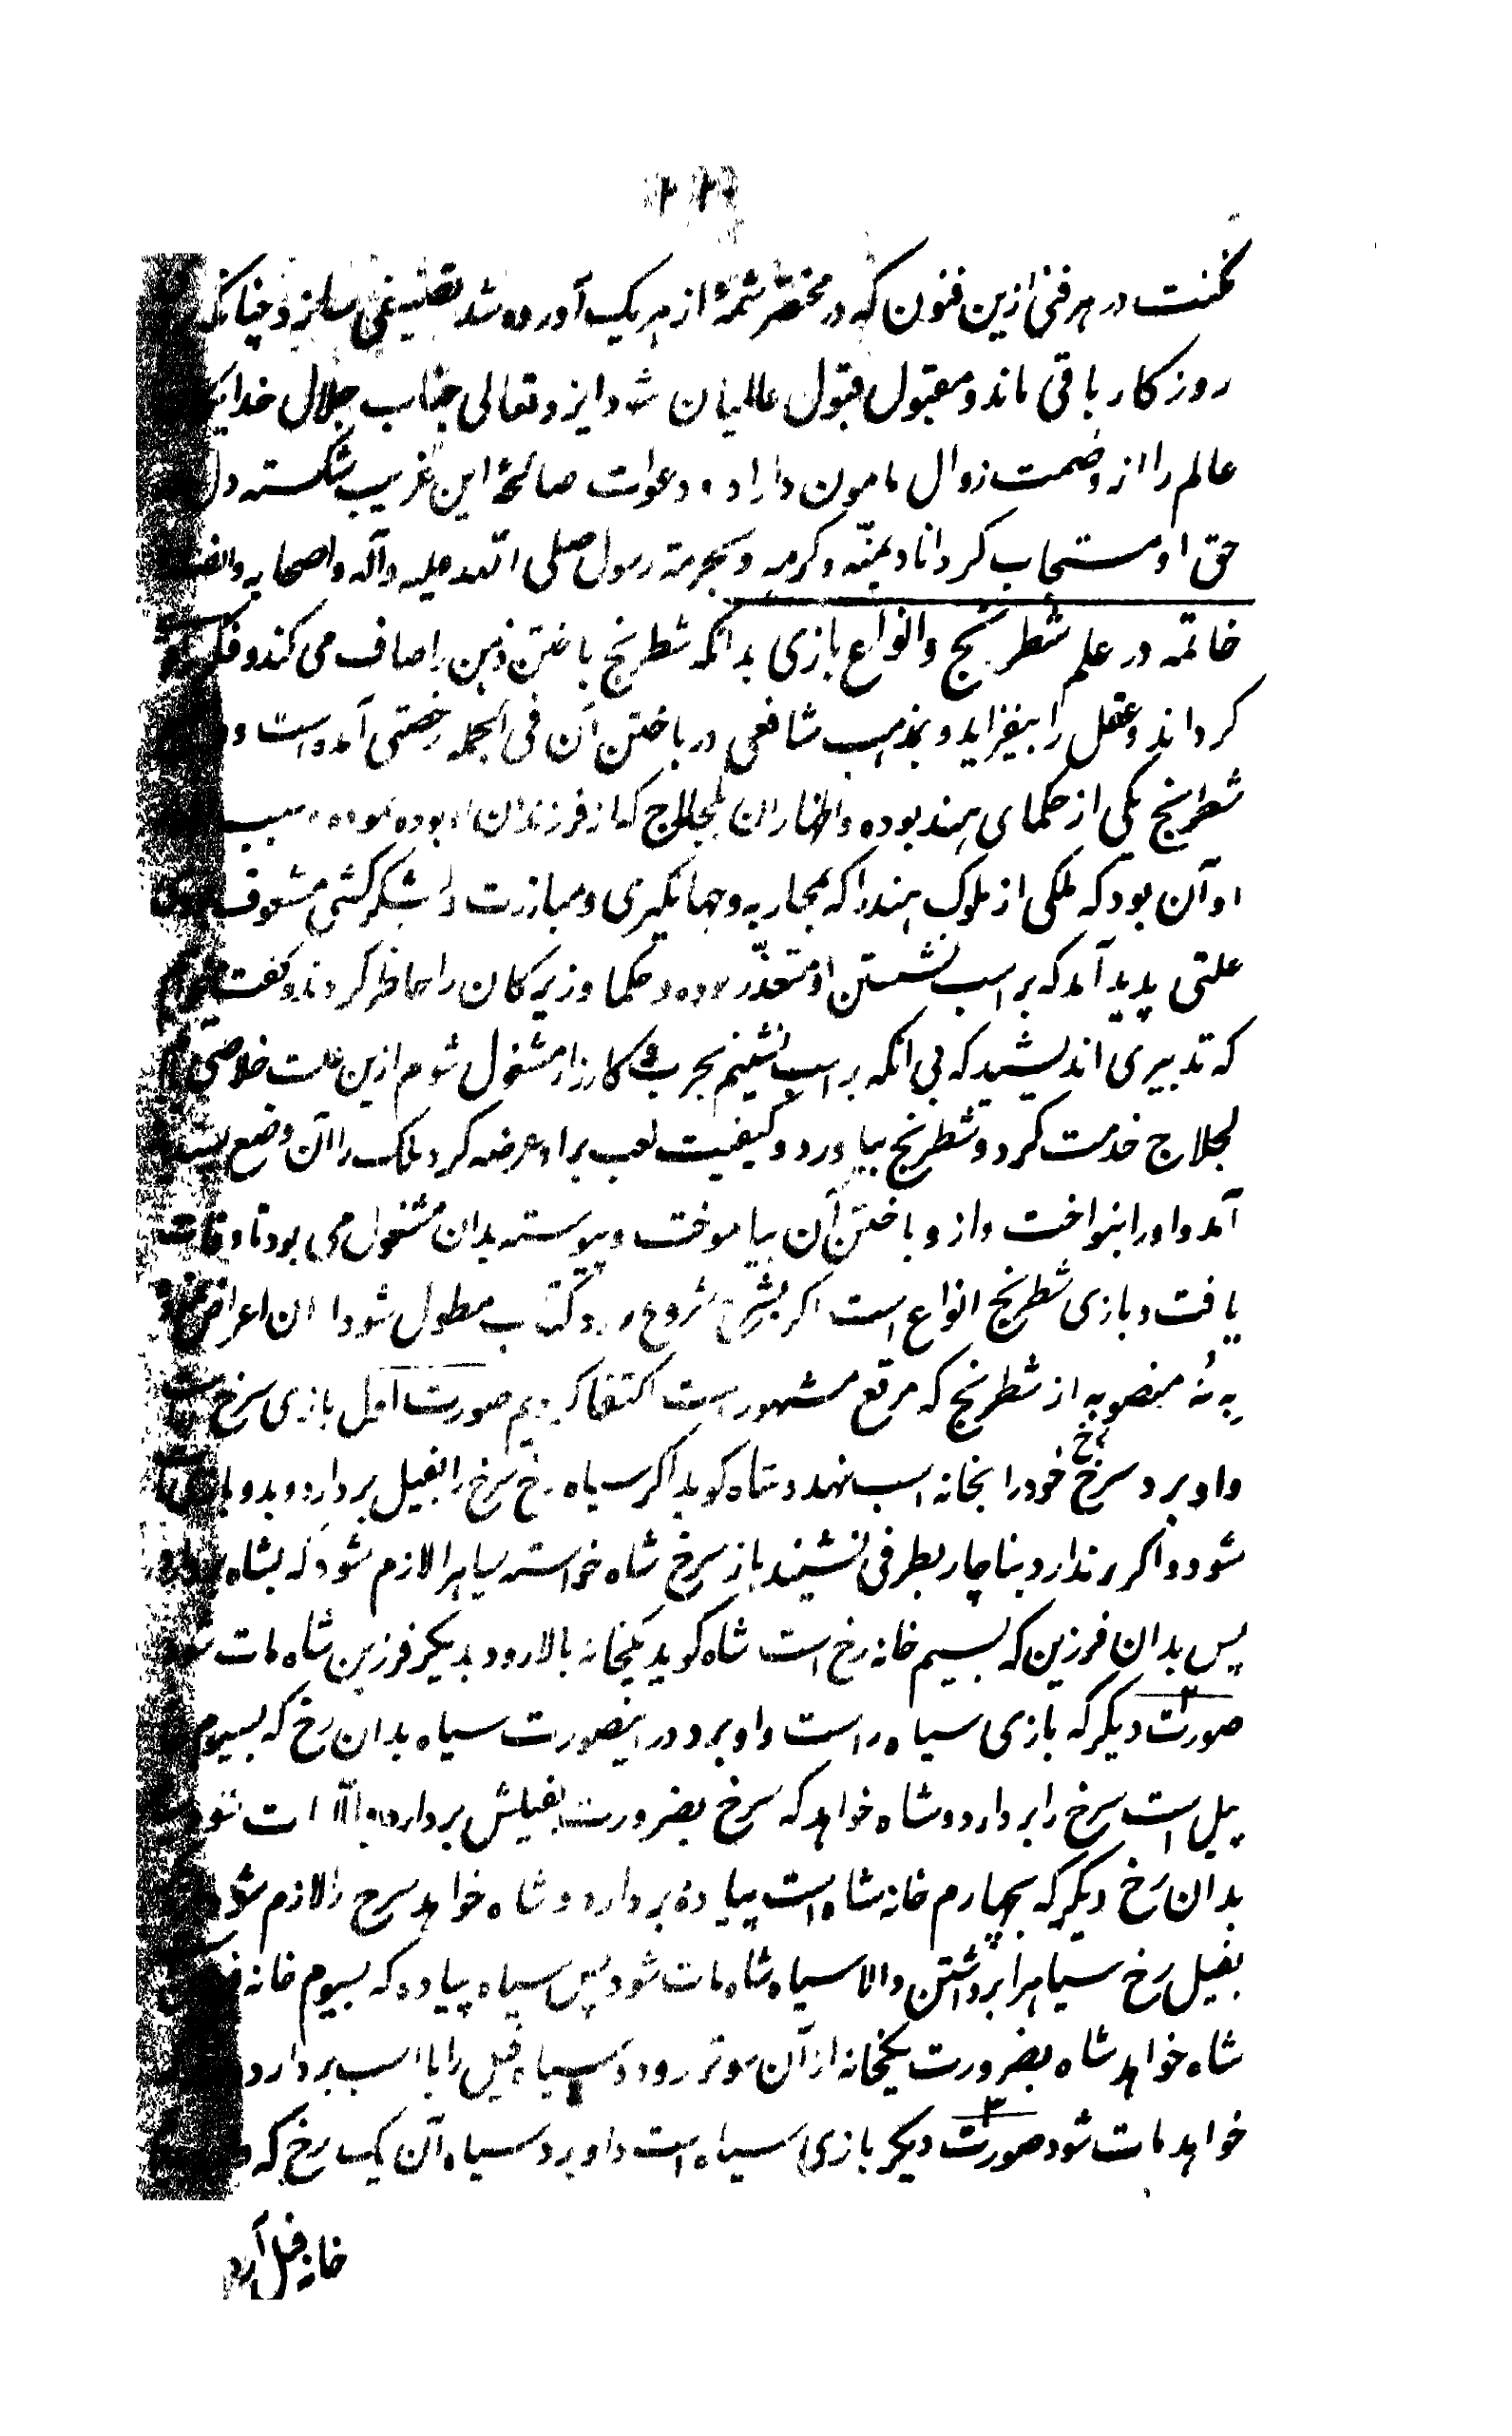 مکنت در هر فنی ازین فنون که در مختصر شمهٔ از هریک آورده شد تصنیفی سازد چنانکه
روزکار باقی ماند و مقبول قبول عالمیان شود ایزد تعالی جناب جلال خدایکان
عالم را از وصمت زوال مامون داراد و دعوات صالحهٔ این غریب شکسته دل
حق او مستجاب کرداناد بمنّه وکرمه و بحرمة رسول صلی الله علیه وآله واصحابه
خاتمه در علم شطرنج وانواع بازی بدانکه شطرنج باختن ذهن را صاف می کند و فکر
کرداند وعقل را بیفزاید و بمذهب شافعی در باختن آن فی الجمله رخصتی آمده است و
شطرنج یکی از حکمای هند بوده واظهار ان لجلاج که از فرزندان او بوده نموده و سبب
او آن بود که ملکی از ملوک هند را که بمحاربه وجهانکیری ومبارزت و لشکر کشی مشعوف
علتی پدید آمد که بر اسب نشستن او متعذّر بوده و حکما و زیرکان را حاظر کردند وکفت
که تدبیری اندیشید که بی انکه بر اسب نشینم بحرب و کارزار مشغول شوم ازین علت خلاصی
لجلاج خدمت کرد و شطرنج بیاورد و کیفیت لعب بر او عرضه کرد ملک را آن وضع پسند
آمد و اورا بنواخت واز و باختن آن بیاموخت و پیوسته بدان مشغول می بود تا وفات
یافت و بازی شطرنج انواع است اکر بشرح شروع رود کتاب مطول شود از ان اعراض
به نُه منصوبه از شطرنج که مرقع مشهور است اکتفا کردیم صورت اول بازی سرخ راست
واو برد سرخ رخ خود را بخانه اسب نهد و شاه کوید اکر سیاه رخ سرخ را بفیل بردارد و بدو بازی
شود و اکر برندارد بناچار بطرفی نشیند باز سرخ شاه خواسته سیاه را لازم شود که بشاه
پس بدان فرزین که بسیم خانه رخ است شاه کوید یکخانه بالا رود بدیکر فرزین شاه مات شود
صورت ۲ دیکر که بازی سیاه راست واو برد در اینصورت سیاه بدان رخ که بسیوم
پیل است سرخ را بردارد و شاه خواهد که سرخ بضرورت بفیلش بردارد والا مات شود
بدان رخ دیکر که بچهارم خانه شاه است پیاده بردارد و شاه خواهد سرخ را لازم شود
بفیل رخ سیاه را برداشتن والا سیاه شاه مات شود پس سیاه پیاده که بسیوم خانه
شاه خواهد شاه بضرورت یکخانه از آن سوتر رود و سیاه فیل را با اسب بردارد
خواهد مات شود صورت ۳ دیکر بازی سیاه است واو برد سیاه آن یک رخ که
خانه فیل آرد